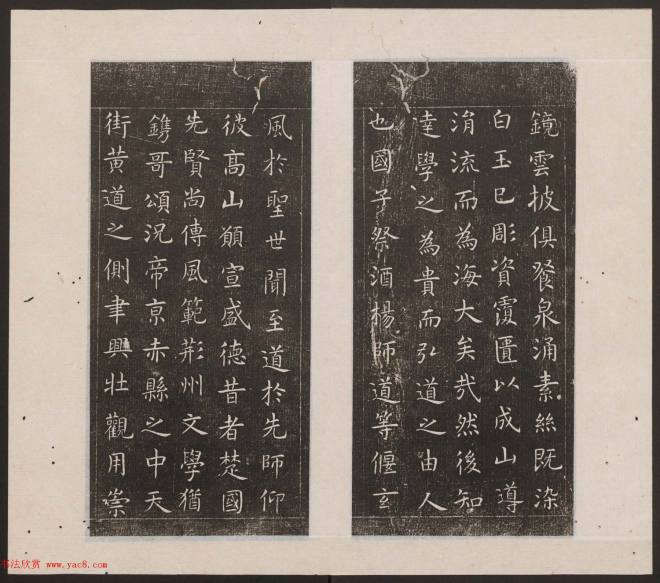 鏡雲披俱餐泉涌素絲既染
白玉已彫資覆匱以成山導
涓流而為海大矣㢤然後知
達學之為貴而弘道之由人
也國子祭酒楊師道等偃玄
風於聖世聞至道於先師仰
彼髙山願宣盛德昔者楚國
先賢尚傳風範荆州文學猶
鐫哥頌況帝京赤縣之中天
街黄道之側聿興壯觀用崇
书法欣赏 www.yac8.com